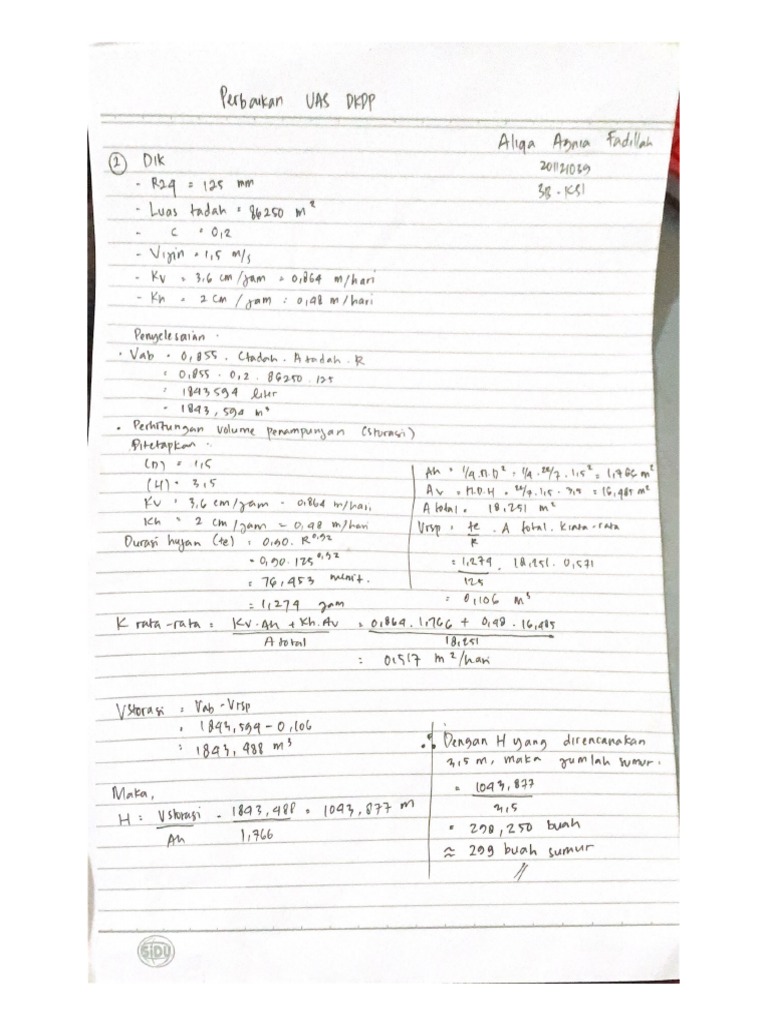 Perbaikan UAS DKDP
Aliqa Agnia Fadillah
201121039
3B-KSI
② Dik
- R24 = 125 mm
- Luas tadah = 86250 m²
- C = 0,2
- Vijin = 1,5 m/s
- Kv = 3,6 cm/jam = 0,864 m/hari
- Kh = 2 cm/jam = 0,48 m/hari
Penyelesaian.
• Vab = 0,855 . Ctadah . A tadah . R
= 0,855 . 0,2 . 86250 . 125
= 1843594 liter
= 1843,594 m³
• Perhitungan volume penampungan (storasi)
Ditetapkan.
(D) = 1,5
(H) = 3,5
Kv = 3,6 cm/jam = 0,864 m/hari
Kh = 2 cm/jam = 0,48 m/hari
Durasi hujan (te) = 0,90 . R^0,92
= 0,90 . 125^0,92
= 76,453 menit.
= 1,274 jam
Ah = 1/4.π.D² = 1/4 . 22/7 . 1,5² = 1,766 m²
Av = π.D.H = 22/7 . 1,5 . 3,5 = 16,485 m²
A total = 18,251 m²
Vrsp = te/R . A total . K rata-rata
= 1,274/125 . 18,251 . 0,571
= 0,106 m³
K rata-rata = Kv.Ah + Kh.Av / A total = 0,864 . 1,766 + 0,48 . 16,485 / 18,251
= 0,517 m²/hari
Vstorasi = Vab - Vrsp
= 1843,594 - 0,106
= 1843,488 m³
Maka,
H = Vstorasi / Ah = 1843,488 / 1,766 = 1043,877 m
∴ Dengan H yang direncanakan
3,5 m, maka jumlah sumur.
= 1043,877 / 3,5
= 298,250 buah
≈ 299 buah sumur
SiDU